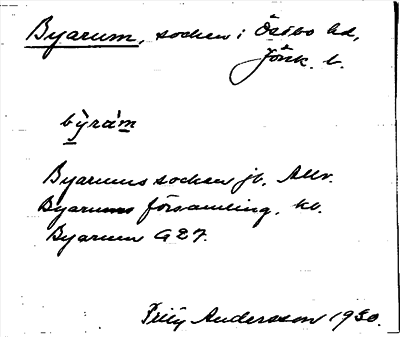 Byarum, socken i Östbo hd,
Jönk. l.
by̆ràm
Byarums socken jb. Allv.
Byarums församling. kb.
Byarum G27.
Frity Andersson 1930.